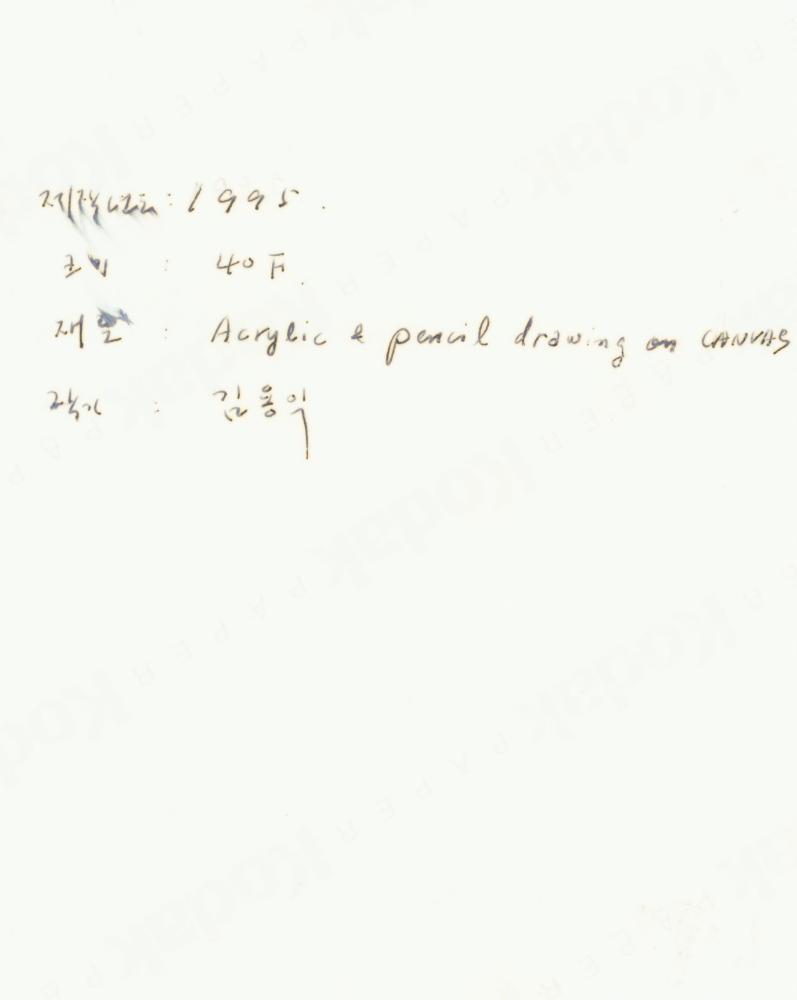 제작년도 : 1995.
크기 : 40F.
재료 : Acrylic & pencil drawing on CANVAS
작가 : 김용익
Kodak PAPER